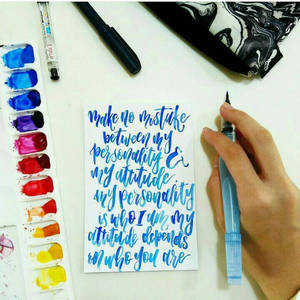 make no mistake
between my
personality &
my attitude
my personality
is who I am my
attitude depends
on who you are